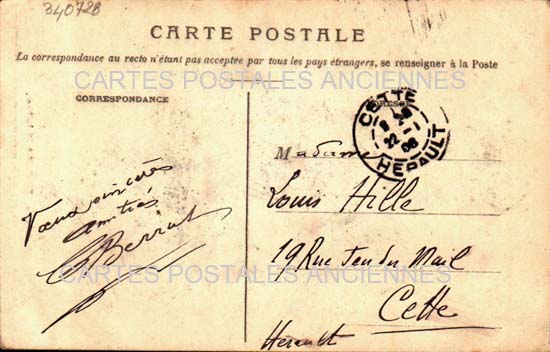 340728
CARTE POSTALE
La correspondance au recto n'étant pas acceptée par tous les pays étrangers, se renseigner à la Poste
CARTES POSTALES ANCIENNES
CORRESPONDANCE
CETTE
22 -1
08
HERAULT
Voeux sincères
amitiés
Madame
Louis Hille
19 Rue Jeu du Mail
CARTES POSTALES ANCIENNES
Cette
Hérault